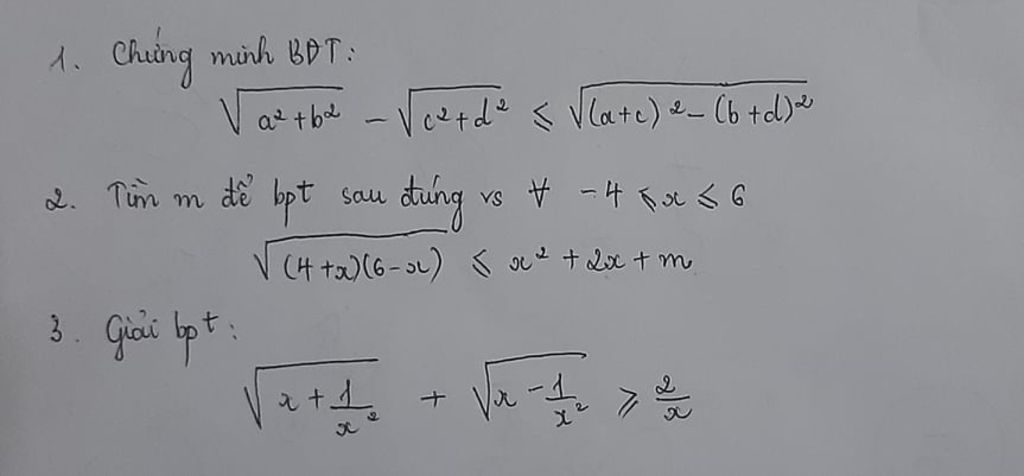 1. Chứng minh BĐT:
√(a²+b²) - √(c²+d²) ≤ √((a+c)²-(b+d)²)
2. Tìm m để bpt sau đúng vs ∀ -4 ≤ x ≤ 6
√((4+x)(6-x)) ≤ x² + 2x + m
3. Giải bpt:
√(x + 1/x²) + √(x - 1/x²) ≥ 2/x